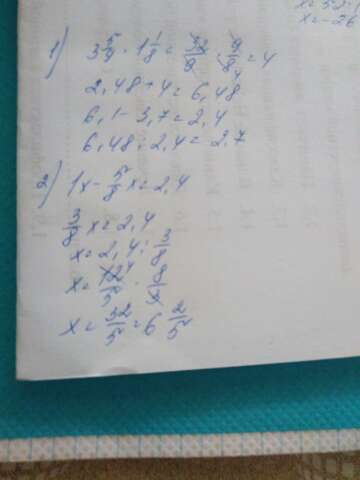 x=52:
x=-26
1)
3 5/9 · 1 1/8 = 32/9 · 9/8 = 4
2,48+4=6,48
6,1-3,7=2,4
6,48:2,4=2,7
2) 1x-5/8x=2,4
3/8x=2,4
x=2,4:3/8
x=12/5·8/3
x=32/5=6 2/5